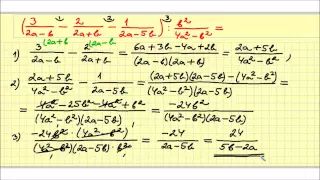 (3/(2a-b) - 2/(2a+b) - 1/(2a-5b)) : b²/(4a²-b²) =
1) 3/(2a-b) - 2/(2a+b) = (6a+3b-4a+2b)/(4a²-b²) = (2a+5b)/(4a²-b²),
2) (2a+5b)/(4a²-b²) - 1/(2a-5b) = ((2a+5b)(2a-5b)-(4a²-b²))/((4a²-b²)(2a-5b)) =
= (4a²-25b²-4a²+b²)/((4a²-b²)(2a-5b)) = -24b²/((4a²-b²)(2a-5b))
3) -24b²·(4a²-b²)/((4a²-b²)(2a-5b)·b²) = -24/(2a-5b) = 24/(5b-2a)